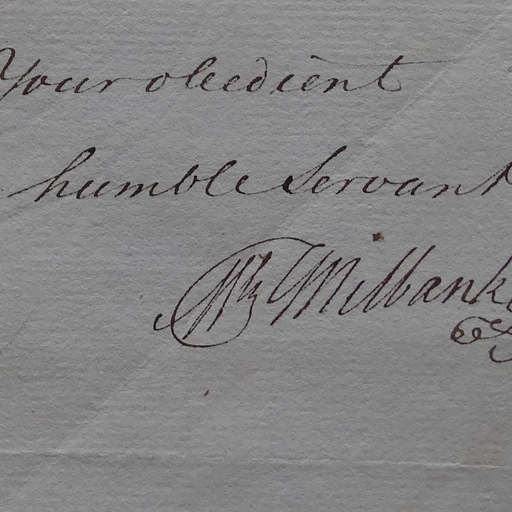 Your obedient
humble Servant
Wm Milbanke